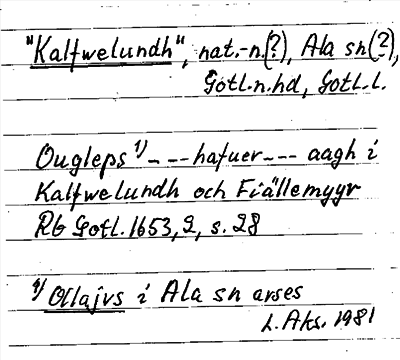 "Kalfwelundh", nat.-n.(?), Ala sn(?),
Gotl.n.hd, Gotl.l.
Ougleps 1)- - --hafuer--- aagh i
Kalfwelundh och Fiällemyyr
Rb Gotl.1653,2, s.28
1) Ollajvs i Ala sn arses
L. Aks. 1981